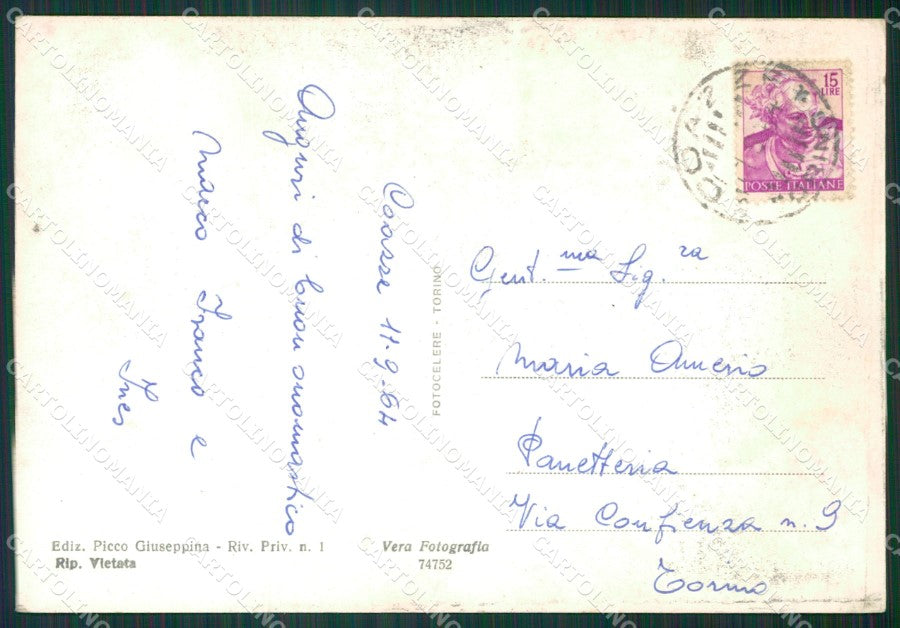 Coazze 11-9-64
Auguri di buon onomastico
Marco Franco e
Ines
Gent.ma Sig.ra
Maria Amerio
Panetteria
Via Confienza n. 9
Torino
15
LIRE
POSTE ITALIANE
FOTOCELERE - TORINO
Ediz. Picco Giuseppina - Riv. Priv. n. 1
Rip. Vietata
Vera Fotografia
74752
CARTOLINOMANIA